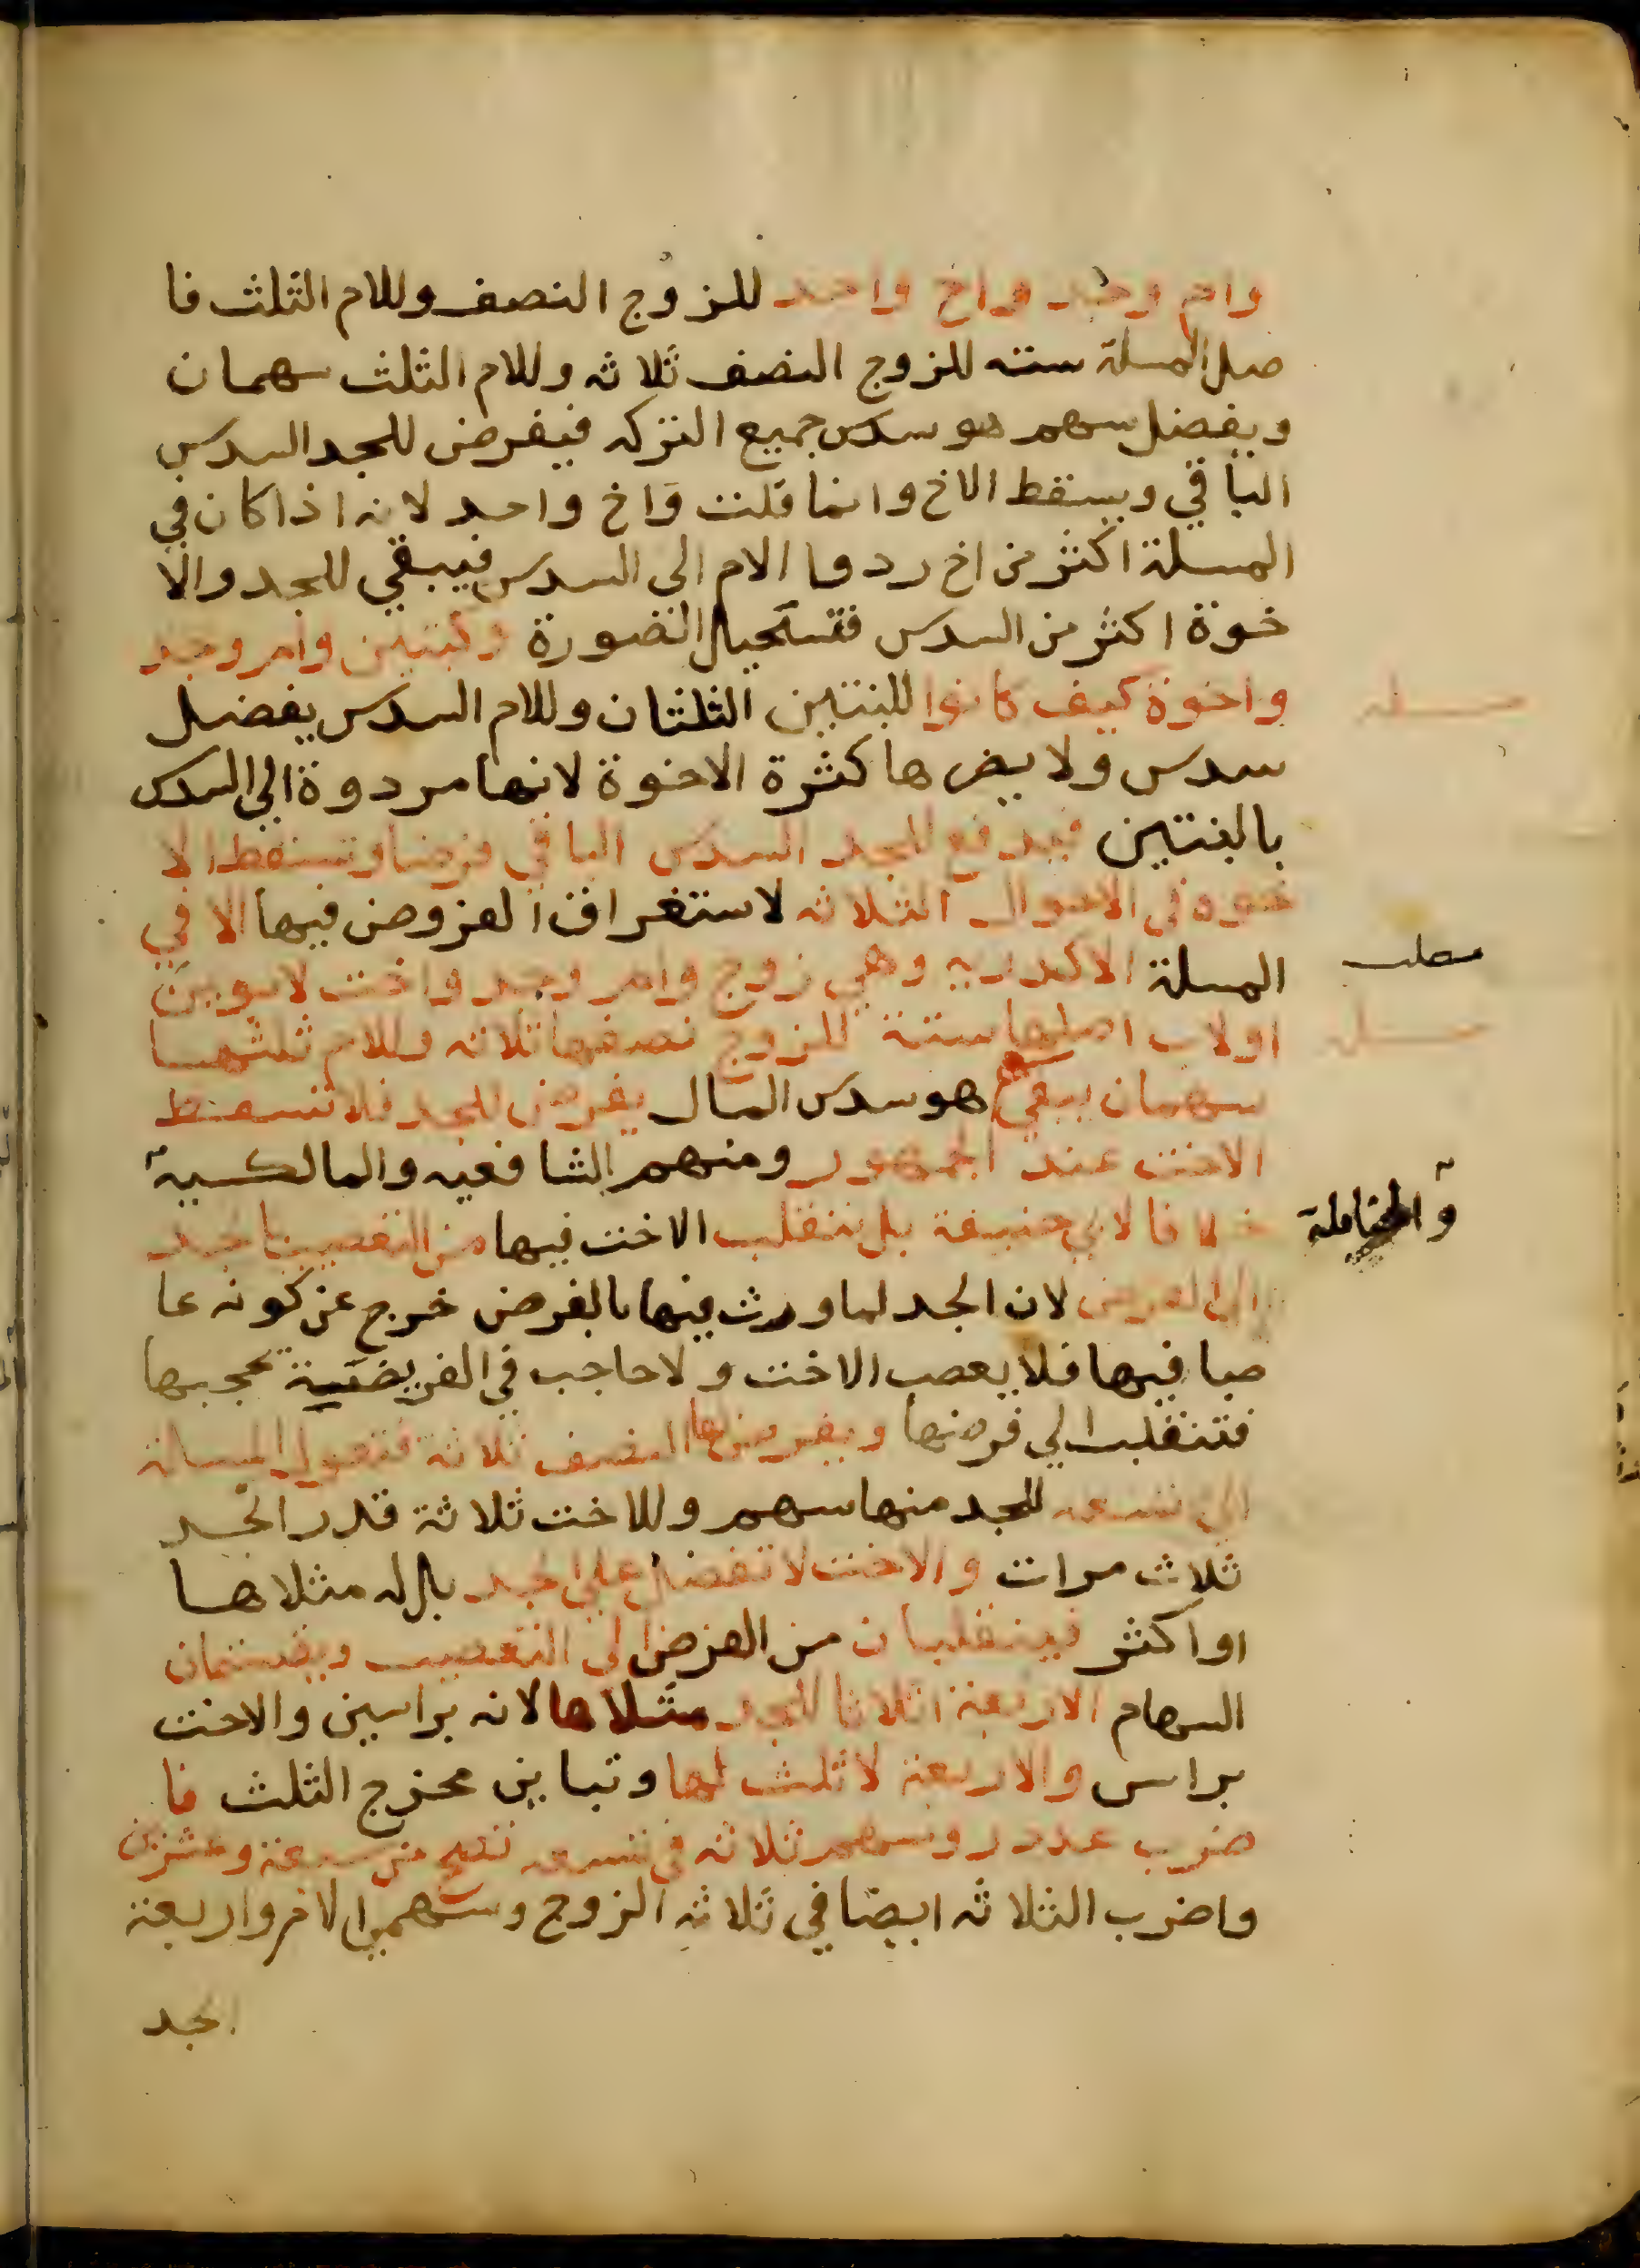 وام وجد واخ واحد للزوج النصف وللام الثلث فا
صل المسلة سته للزوج النصف ثلاثه وللام الثلث سهمان
ويفضل سهم هو سدس جميع التركه فيفرض للجد السدس
الباقي ويسقط الاخ وانما قلت واخ واحد لانه اذا كان في
المسلة اكثر من اخ ردوا الام الى السدس فيبقي للجد والا
خوة اكثر من السدس فتستحيل الصورة وكبنتين وام وجد
واخوة كيف كانوا للبنتين الثلثان وللام السدس يفضل
مسله
سدس ولا يضرها كثرة الاخوة لانها مردوة الي السدس
بالبنتين فيدفع للجد السدس الباقي فرضا وتسقط الا
خوة في الاحوال الثلاثه لاستغراق الفروض فيها الا في
المسلة الاكدريه وهي زوج وام وجد واخت لابوين
مطلب
او لاب اصلها ستة للزوج نصفها ثلاثه وللام ثلثها
مسله
سهمان يبقي سهم هو سدس المال يفرض للجد فلا تسقط
الاخت عند الجمهور ومنهم الشافعيه والمالكية
والحنابلة
خلافا لابي حنيفة بل تنقلب الاخت فيها من التعصيب بالجد
الى الفرض لان الجد لما ورث فيها بالفرض خرج عن كونه عا
صبا فيها فلا يعصب الاخت ولا حاجب في الفريضة يحجبها
فتنقلب الي فرضها ويفرض لها النصف ثلاثة فتعول المسالة
الى تسعه للجد منها سهم وللاخت ثلاثة قدر الجد
ثلاث مرات والاخت لا تفضل علي الجد بل له مثلاها
او اكثر فينقلبان من الفرض الى التعصيب ويقتسمان
السهام الاربعة اثلاثا للجد مثلاها لانه براسين والاخت
براس والاربعة لا ثلث لها وتباين مخرج الثلث فا
ضرب عدد روسهم ثلاثه في تسعه تصح من سبعة وعشرين
واضرب الثلاثه ايضا في ثلاثه الزوج وسهمي الام واربعة
الجد